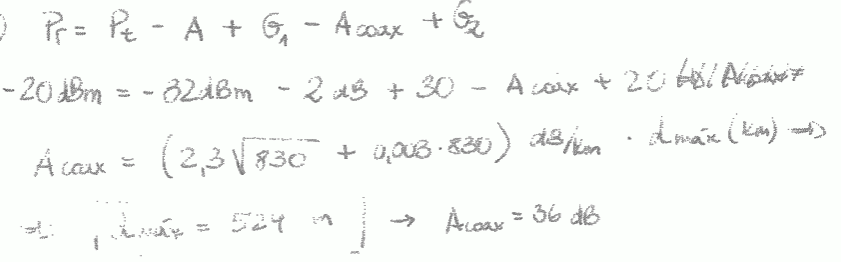 ) Pr = Pt - A + G1 - A coax + G2
-20 dBm = -32 dBm - 2 dB + 30 - A coax + 20
A coax = (2,3 √830 + 0,003 · 830) dB/km · d máx (km) ⇒
⇒ d máx = 524 m → A coax = 36 dB